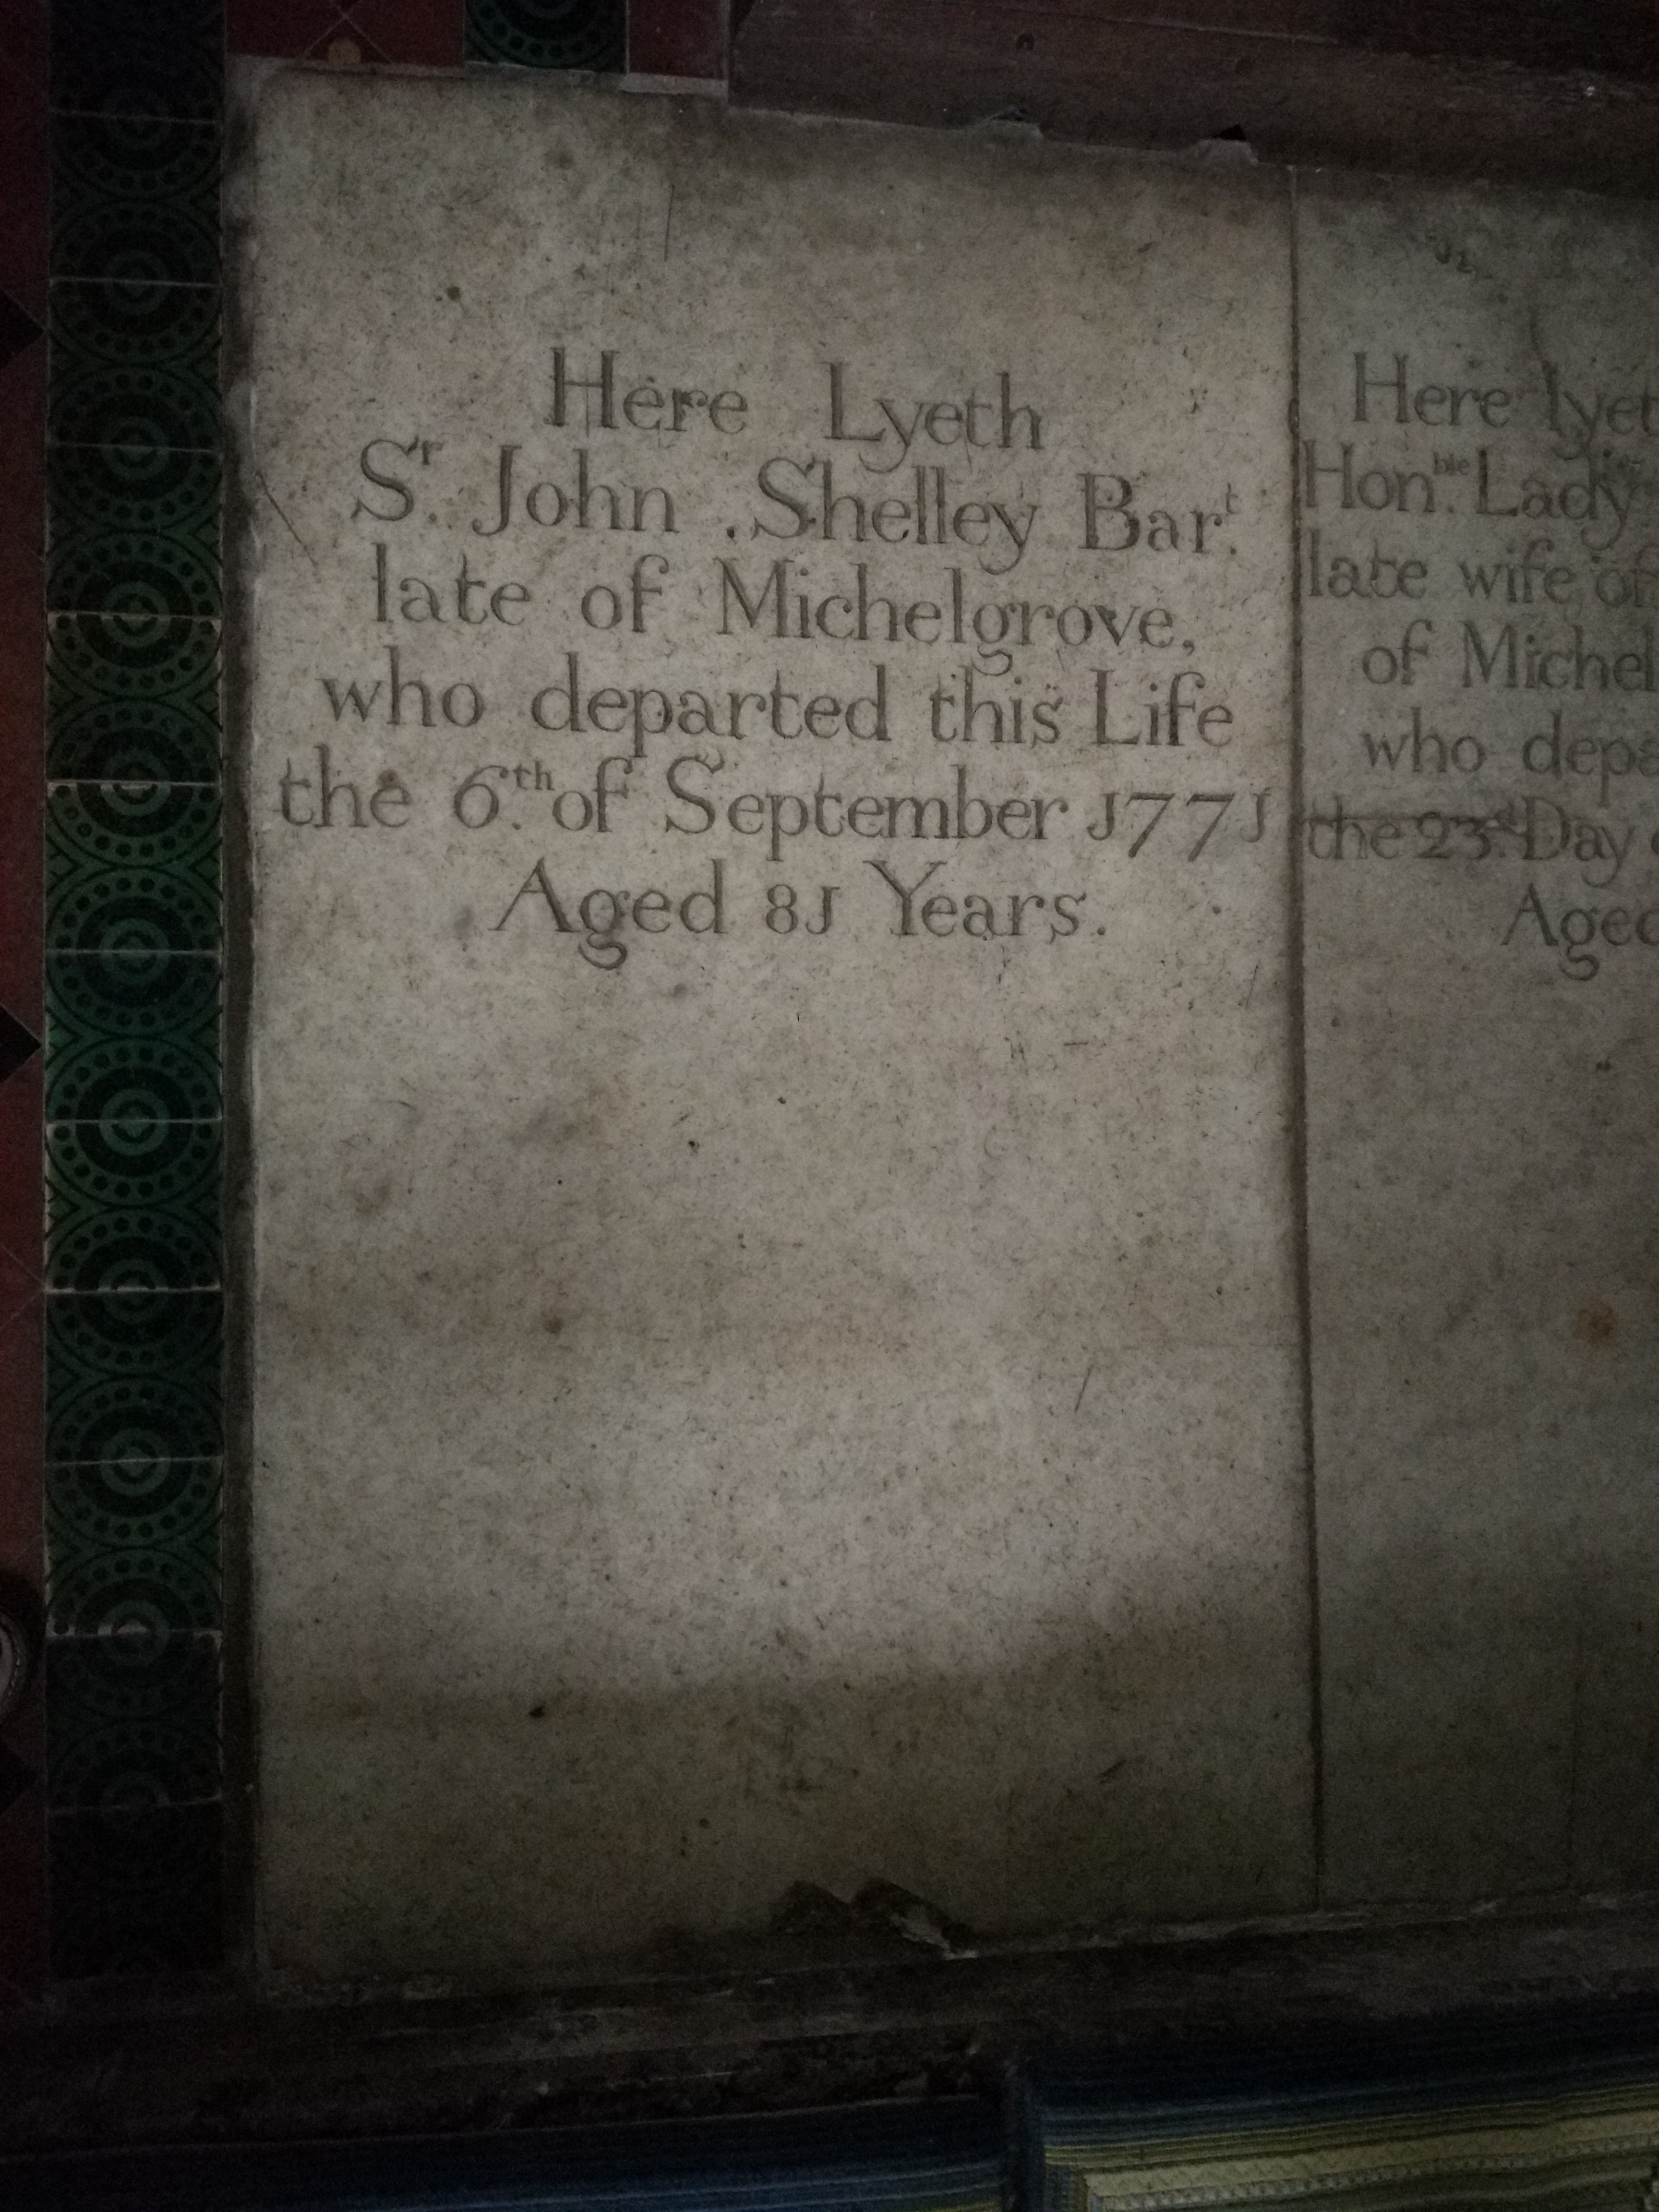 Here Lyeth
Sr. John Shelley Bart.
late of Michelgrove,
who departed this Life
the 6th. of September J77J
Aged 8J Years.
Here lyet
Honble. Lady
late wife of
of Michel
who depa
the 23d. Day
Aged